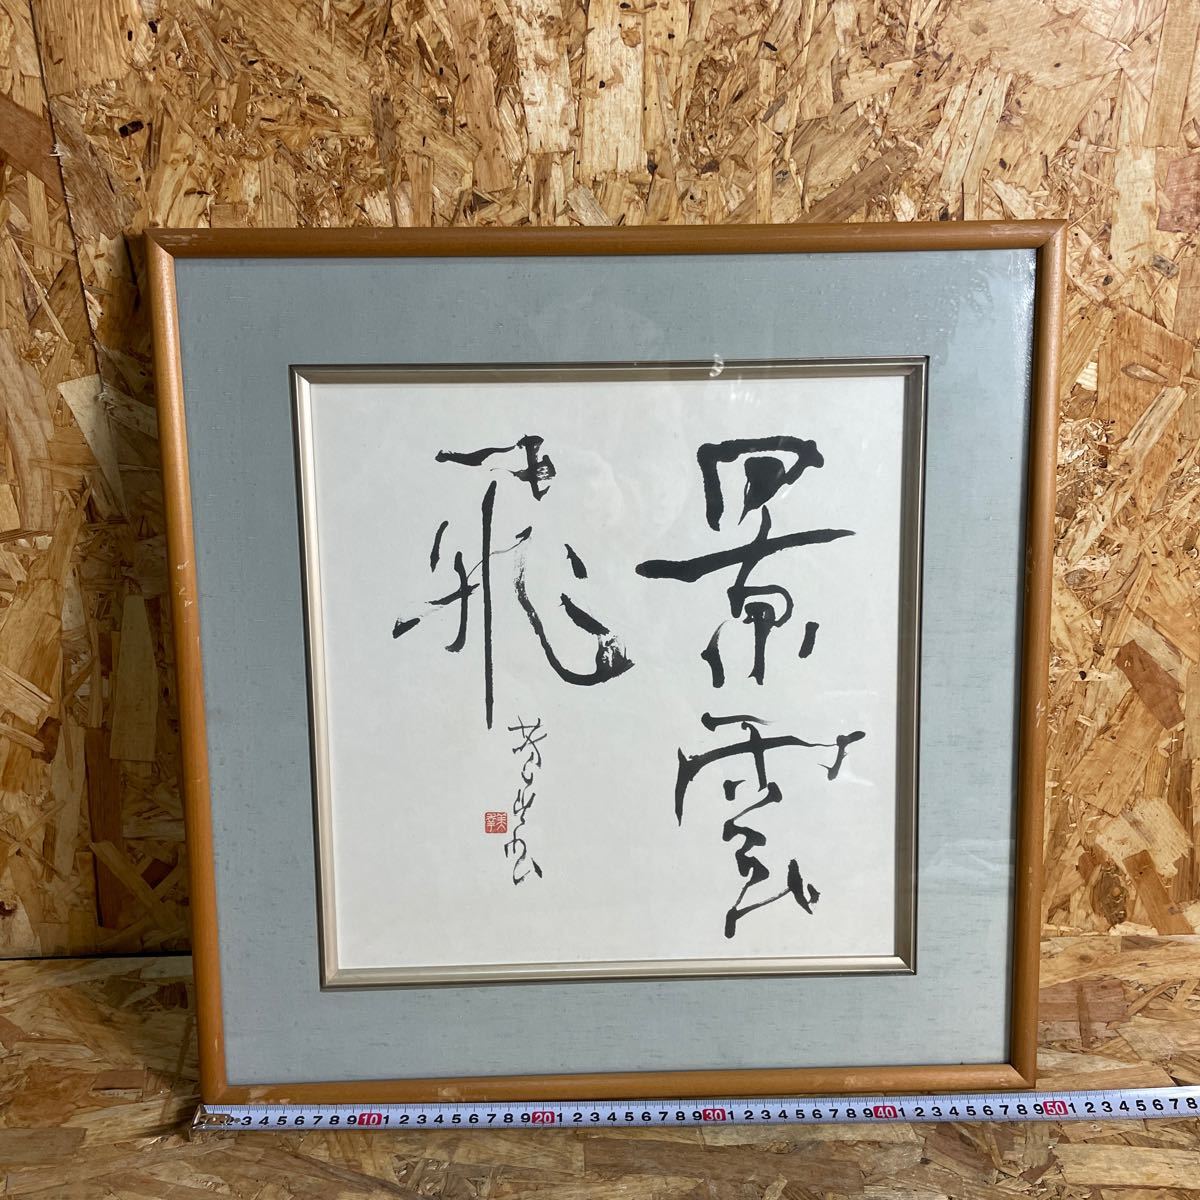 景雲
飛
美
幸
2 3 4 5 6 7 8 9 10 1 2 3 4 5 6 7 8 9 20 1 2 3 4 5 6 7 8 9 30 1 2 3 4 5 6 7 8 9 40 1 2 3 4 5 6 7 8 9 50 1 2 3 4 5 6 7 8